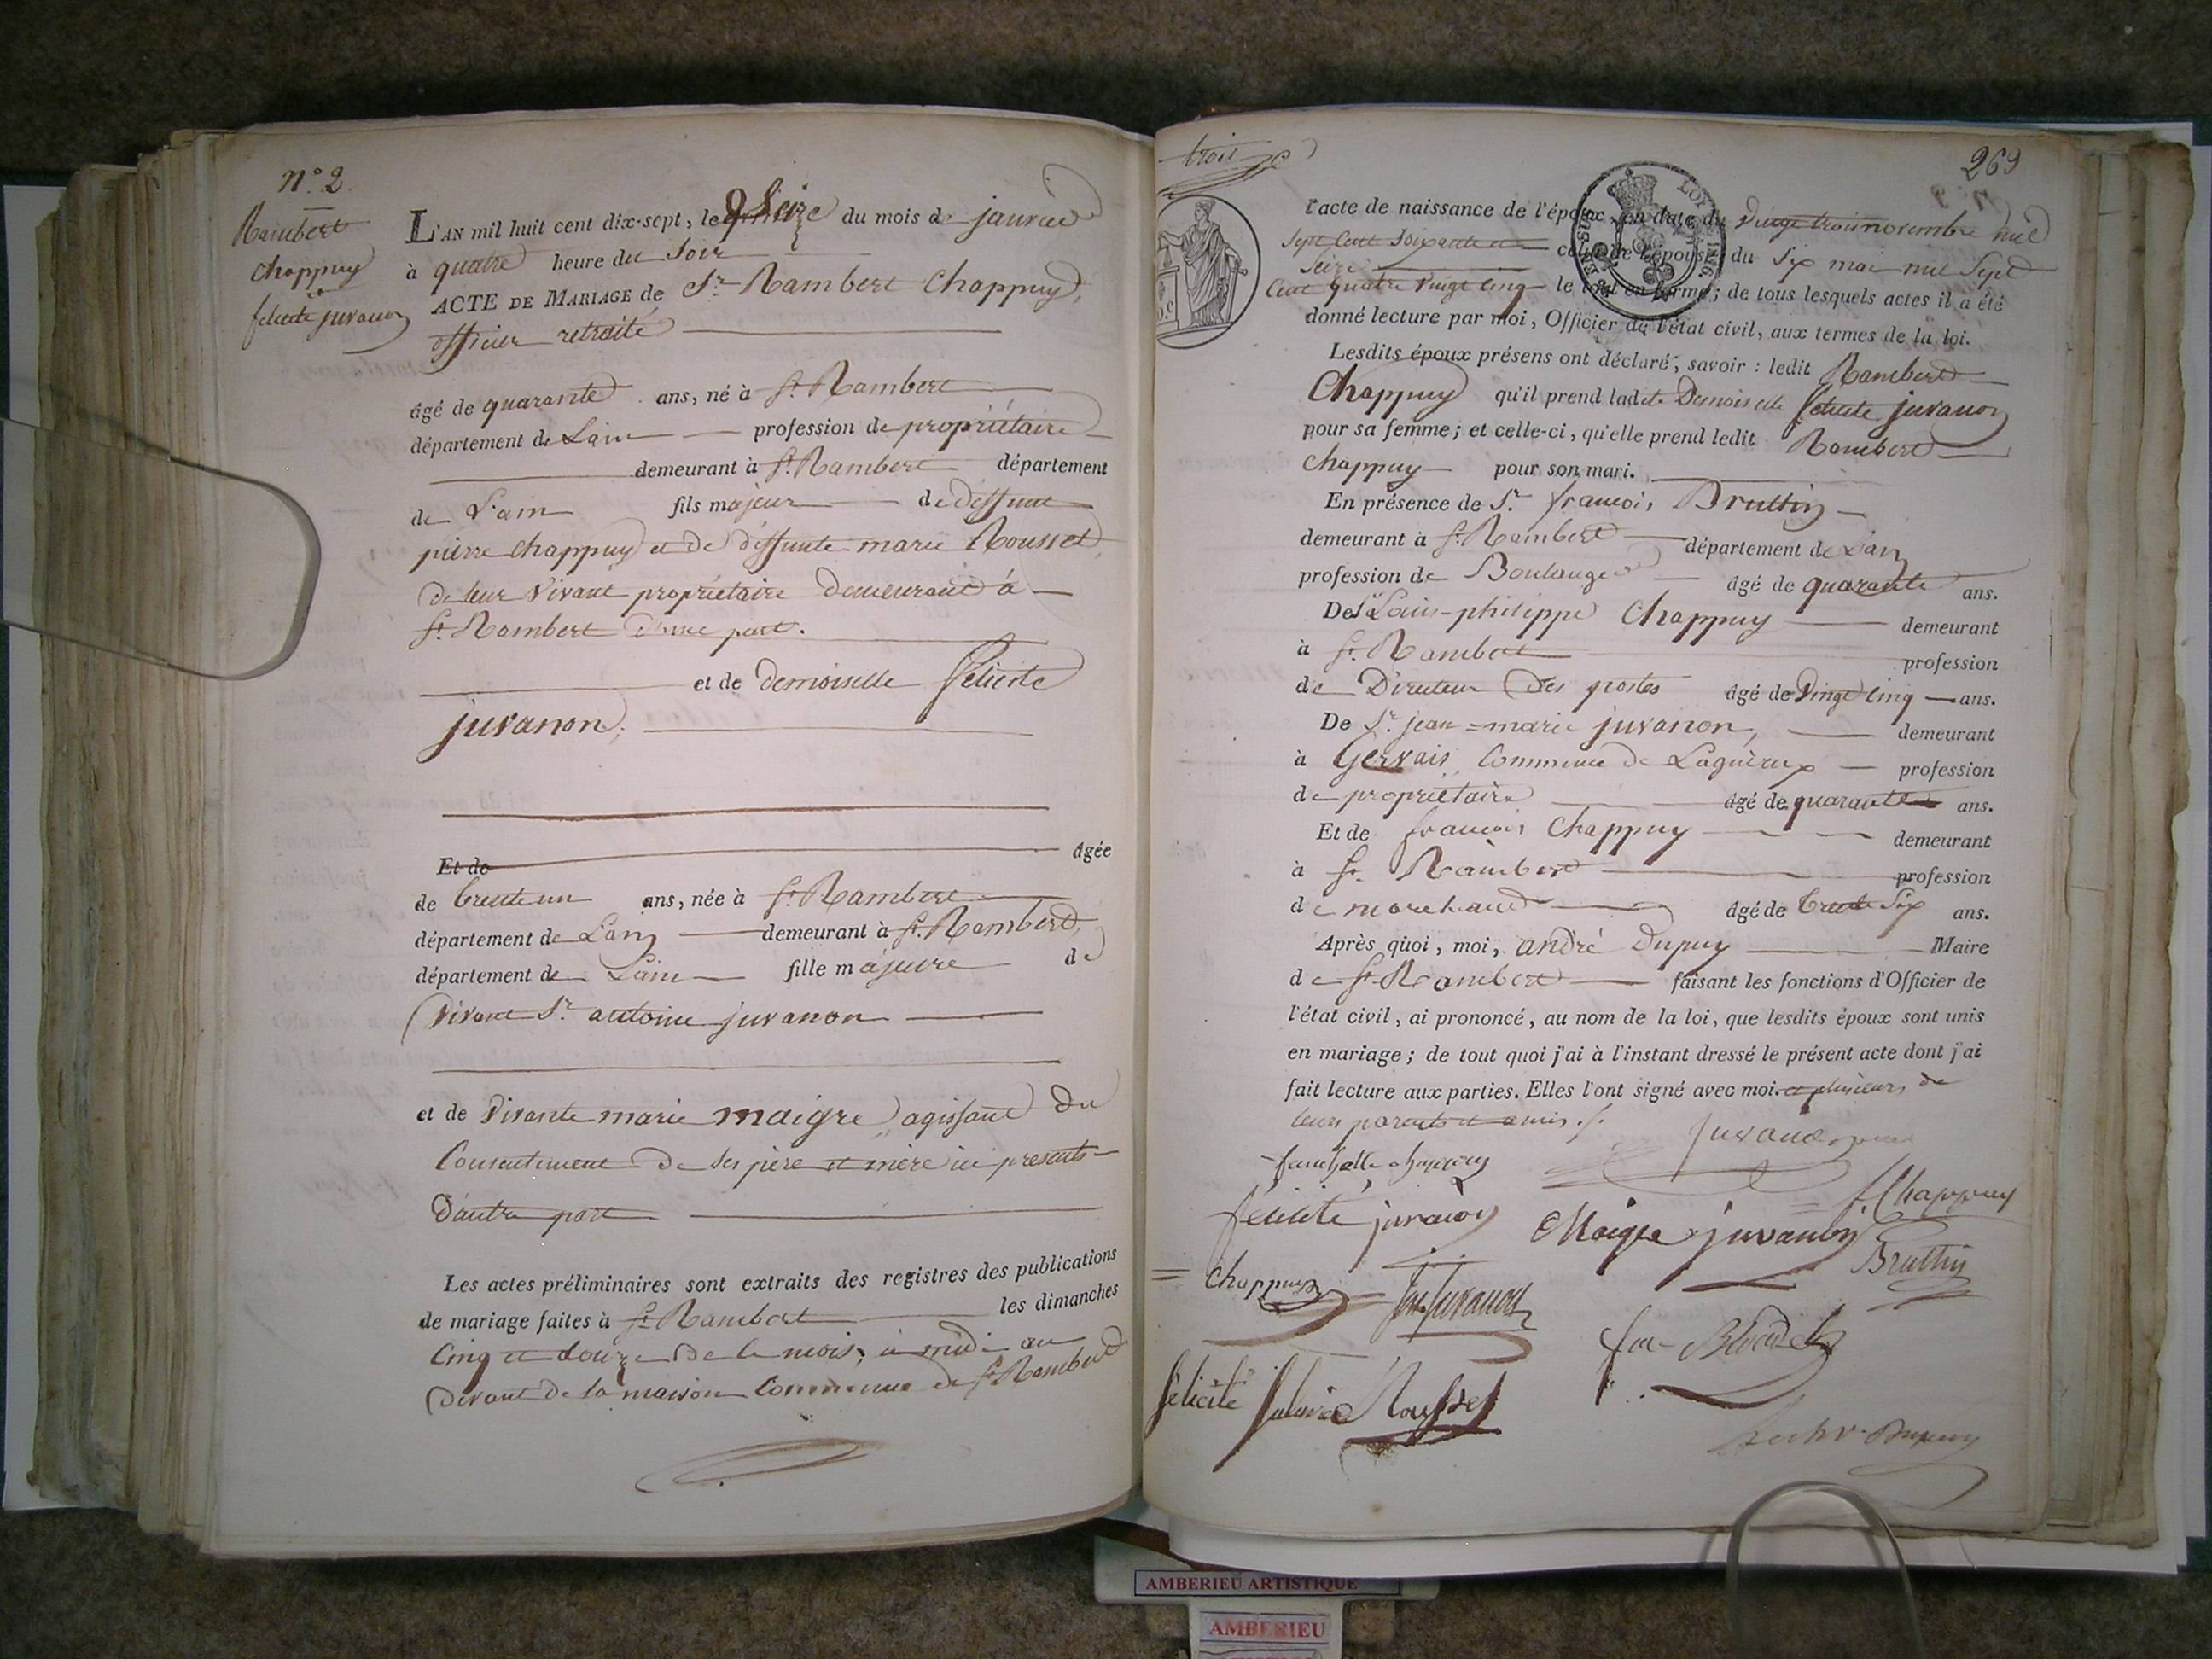 N.° 2.
Rambert
Chappuy
et
felicité juvanon
L'AN mil huit cent dix-sept, le Seize du mois de janvier
à quatre heure du Soir
ACTE DE MARIAGE de Sr. Rambert Chappuy,
officier retraité
âgé de quarante ans, né à St. Rambert
département de Lain profession de propriétaire
demeurant à St. Rambert département
de L'ain fils majeur de deffunt
pierre Chappuy et de deffunte marie Rousset,
de leur vivant propriétaire demeurant à
St. Rambert d'une part.
et de demoiselle Felicité
juvanon,
Et de âgée
de trente un ans, née à St. Rambert
département de Lain demeurant à St. Rambert,
département de Lain fille majeure de
vivant Sr. antoine juvanon
et de vivante marie maigre, agissant du
Consentement de Ses père et mère ici presents
d'autre part
Les actes préliminaires sont extraits des registres des publications
de mariage faites à St. Rambert les dimanches
Cinq et douze de ce mois, à midi au
devant de la maison Commune de St. Rambert
trois
269
l'acte de naissance de l'époux, en date du vingt trois novembre mil
Sept Cent Soixante et
Seize celui de l'épouse, du Six mai mil Sept
Cent quatre vingt Cinq le tout en forme; de tous lesquels actes il a été
donné lecture par moi, Officier de l'état civil, aux termes de la loi.
Lesdits époux présens ont déclaré, savoir : ledit Rambert
Chappuy qu'il prend ladite Demoiselle felicité juvanon
pour sa femme; et celle-ci, qu'elle prend ledit Rambert
Chappuy pour son mari.
En présence de Sr. françois Bruttin
demeurant à St. Rambert département de Lain
profession de Boulanger âgé de quarante ans.
De Sr. Louis-philippe Chappuy demeurant
à St. Rambert profession
de Directeur des postes âgé de vingt cinq ans.
De Sr. jean=marie juvanon, demeurant
à Gervais, Commune de Lagnieux profession
de propriétaire âgé de quarante ans.
Et de françois Chappuy demeurant
à St. Rambert profession
de marchand âgé de trente Six ans.
Après quoi, moi, andré Dupuy Maire
de St. Rambert faisant les fonctions d'Officier de
l'état civil, ai prononcé, au nom de la loi, que lesdits époux sont unis
en mariage; de tout quoi j'ai à l'instant dressé le présent acte dont j'ai
fait lecture aux parties. Elles l'ont signé avec moi. et plusieurs de
leurs parents et amis./.
felicité juvanon
Maigre juvanon
f Chappuy
Bruttin
Chappuy
juvanon
felicité
Rousset
Dupuy
AMBERIEU ARTISTIQUE
AMBERIEU